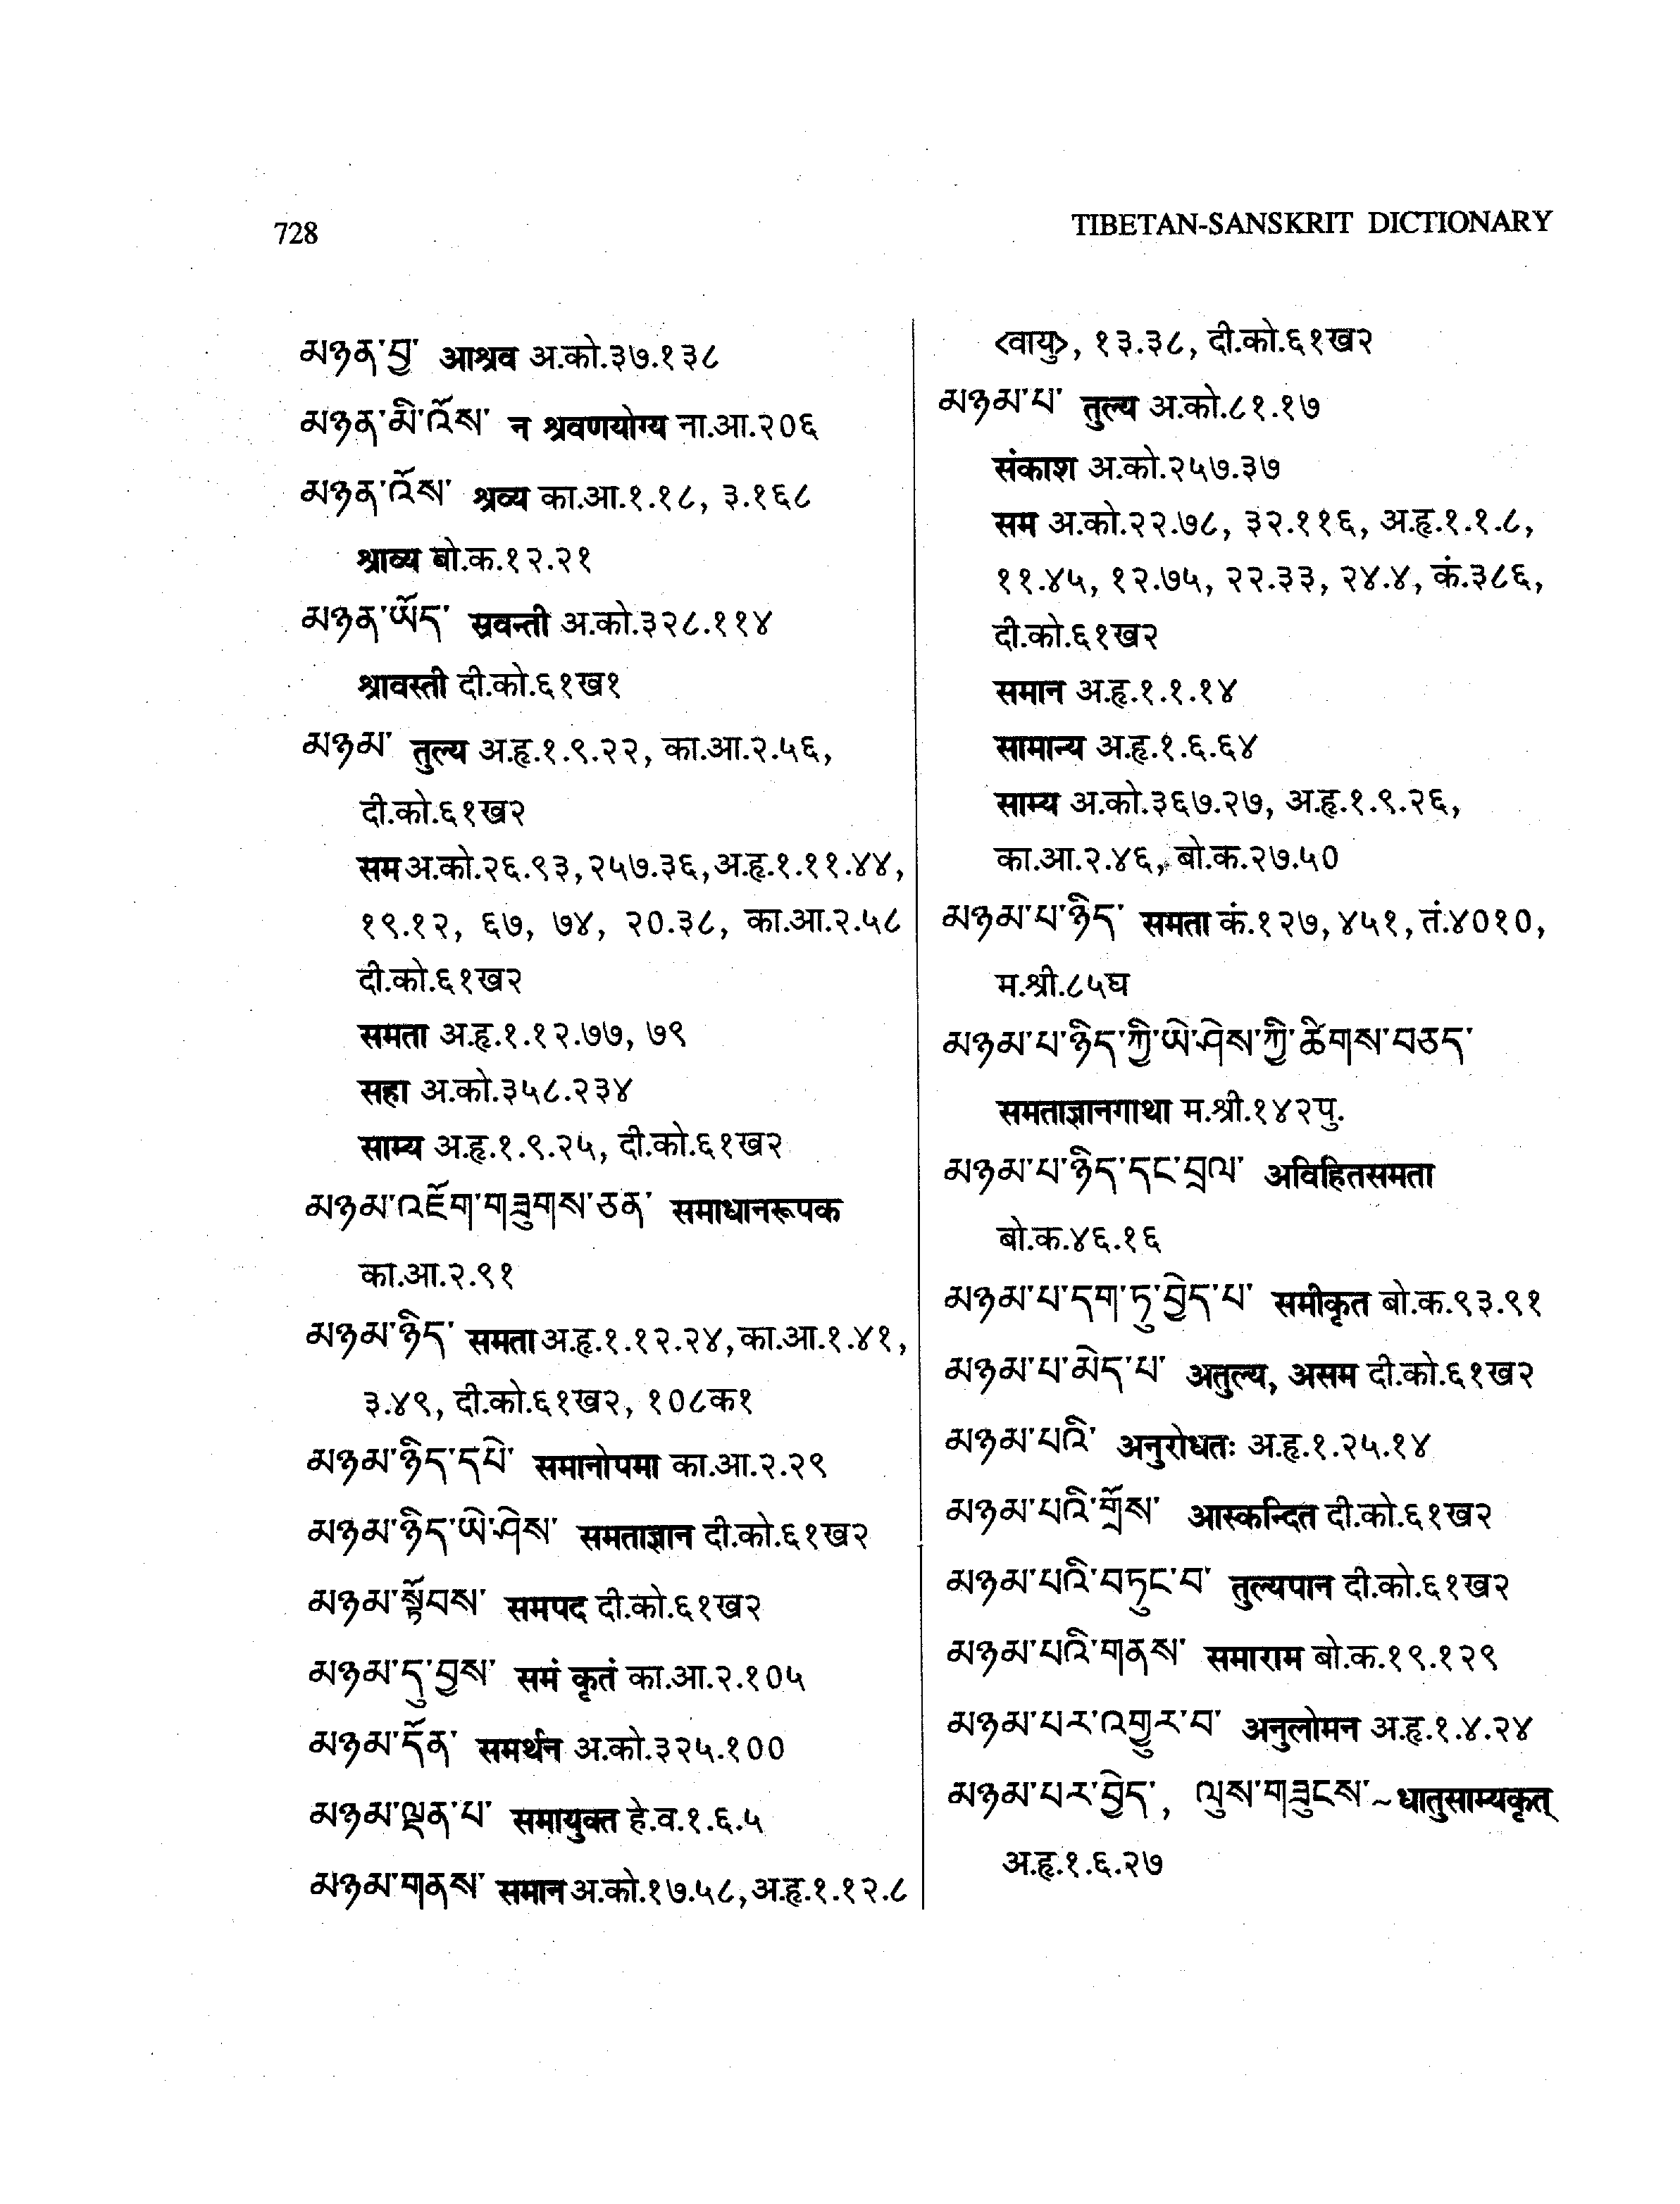 728
TIBETAN-SANSKRIT DICTIONARY
མཉན་བྱ་ आश्रव अ.को.३७.१३८
མཉན་མི་འོས་ न श्रवणयोग्य ना.आ.२०६
མཉན་འོས་ श्रव्य का.आ.१.१८, ३.१६८
श्राव्य बो.क.१२.२१
མཉན་ཡོད་ स्रवन्ती अ.को.३२८.११४
श्रावस्ती दी.को.६१ख१
མཉམ་ तुल्य अ.हृ.१.९.२२, का.आ.२.५६,
दी.को.६१ख२
सम अ.को.२६.९३, २५७.३६, अ.हृ.१.११.४४,
१९.१२, ६७, ७४, २०.३८, का.आ.२.५८
दी.को.६१ख२
समता अ.हृ.१.१२.७७, ७९
सहा अ.को.३५८.२३४
साम्य अ.हृ.१.९.२५, दी.को.६१ख२
མཉམ་འཇོག་གཟུགས་ཅན་ समाधानरूपक
का.आ.२.९१
མཉམ་ཉིད་ समता अ.हृ.१.१२.२४, का.आ.१.४१,
३.४९, दी.को.६१ख२, १०८क१
མཉམ་ཉིད་དཔེ་ समानोपमा का.आ.२.२९
མཉམ་ཉིད་ཡེ་ཤེས་ समताज्ञान दी.को.६१ख२
མཉམ་སྟོབས་ समपद दी.को.६१ख२
མཉམ་དུ་བྱས་ समं कृतं का.आ.२.१०५
མཉམ་དོན་ समर्थन अ.को.३२५.१००
མཉམ་ལྡན་པ་ समायुक्त हे.व.१.६.५
མཉམ་གནས་ समान अ.को.१७.५८, अ.हृ.१.१२.८
<वायु>, १३.३८, दी.को.६१ख२
མཉམ་པ་ तुल्य अ.को.८१.१७
संकाश अ.को.२५७.३७
सम अ.को.२२.७८, ३२.११६, अ.हृ.१.१.८,
११.४५, १२.७५, २२.३३, २४.४, कं.३८६,
दी.को.६१ख२
समान अ.हृ.१.१.१४
सामान्य अ.हृ.१.६.६४
साम्य अ.को.३६७.२७, अ.हृ.१.९.२६,
का.आ.२.४६, बो.क.२७.५०
མཉམ་པ་ཉིད་ समता कं.१२७, ४५१, तं.४०१०,
म.श्री.८५घ
མཉམ་པ་ཉིད་ཀྱི་ཡེ་ཤེས་ཀྱི་ཚིགས་བཅད་
समताज्ञानगाथा म.श्री.१४२पु.
མཉམ་པ་ཉིད་དང་བྲལ་ अविहितसमता
बो.क.४६.१६
མཉམ་པ་དག་ཏུ་བྱེད་པ་ समीकृत बो.क.९३.९१
མཉམ་པ་མེད་པ་ अतुल्य, असम दी.को.६१ख२
མཉམ་པའི་ अनुरोधतः अ.हृ.१.२५.१४
མཉམ་པའི་གྲོས་ आस्कन्दित दी.को.६१ख२
མཉམ་པའི་བཏུང་བ་ तुल्यपान दी.को.६१ख२
མཉམ་པའི་གནས་ समाराम बो.क.१९.१२९
མཉམ་པར་འགྱུར་བ་ अनुलोमन अ.हृ.१.४.२४
མཉམ་པར་བྱེད་, ལུས་གཟུངས་~धातुसाम्यकृत्
अ.हृ.१.६.२७